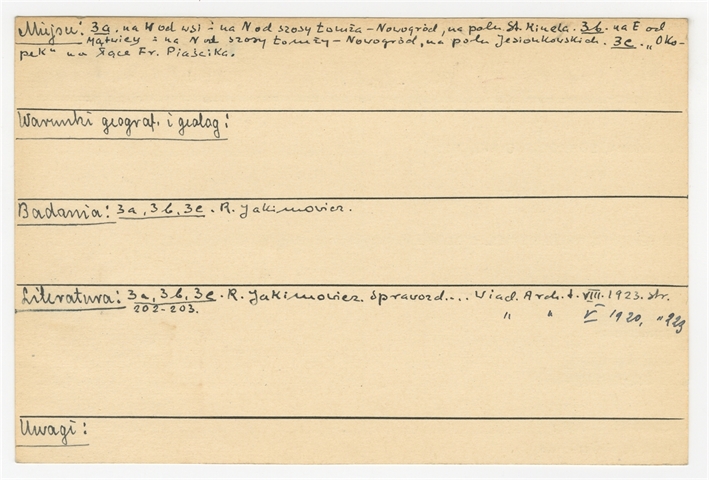 Miejsc: 3a. na W od wsi i na N od szosy Łomża – Nowogród, na polu St. Kinela. 3b. na E od
Mątwicy i na N od szosy Łomży – Nowogród, na polu Jesionkowskich. 3c. „Oko-
pek" na łące Fr. Piaścika.
Warunki geograf. i geolog:
Badania: 3a, 3b, 3c. R. Jakimowicz.
Literatura: 3a, 3b, 3c. R. Jakimowicz. Sprawozd... Wiad. Arch. t. VIII. 1923. str.
202-203.
" " V 1920, " 223
Uwagi: